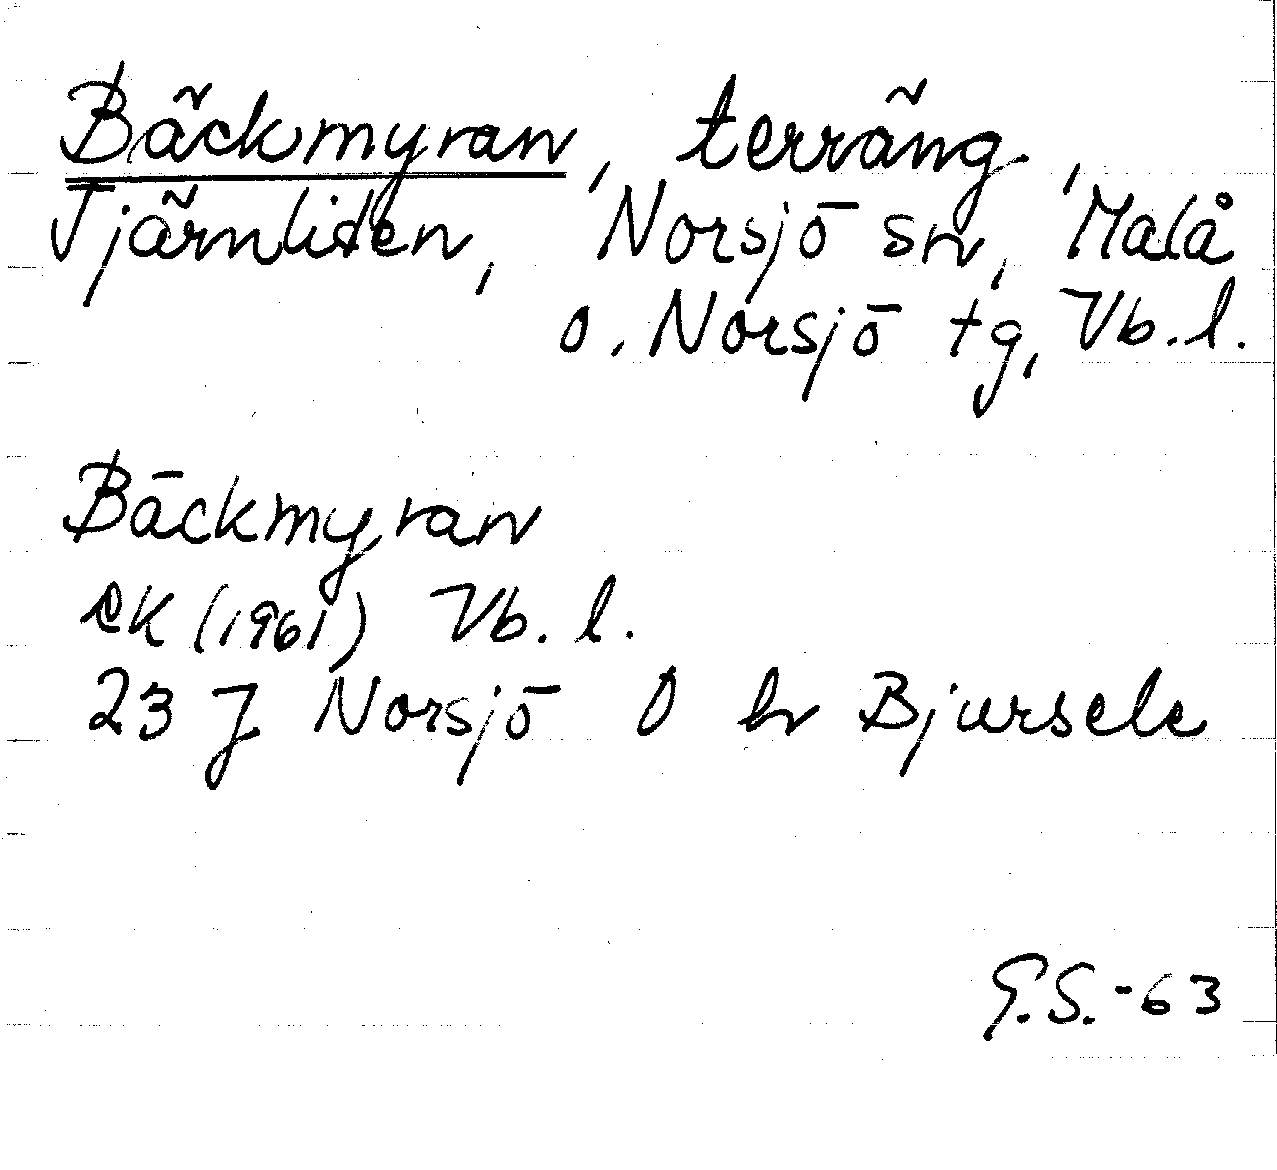 Bäckmyran, terräng,
Tjärnliden, Norsjö sn, Malå
o. Norsjö tg, Vb. l.
Bäckmyran
EK (1961) Vb. l.
23 J Norsjö O hr Bjursele
G.S.-63